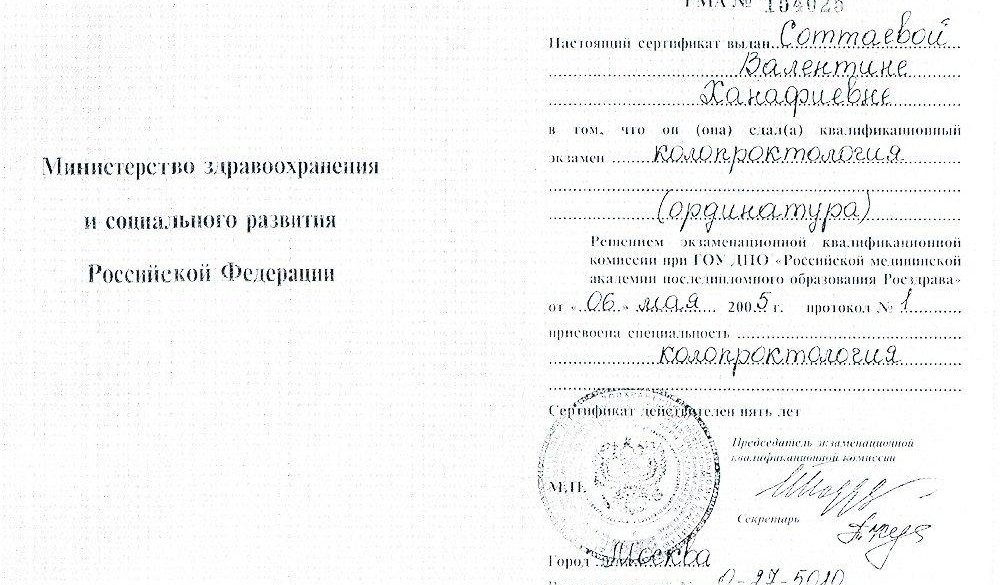 Министерство здравоохранения
и социального развития
Российской Федерации
РМА № 154025
Настоящий сертификат выдан Соттаевой
Валентине
Ханафиевне
в том, что он (она) сдал(а) квалификационный
экзамен колопроктология
(ординатура)
Решением экзаменационной квалификационной
комиссии при ГОУ ДПО «Российской медицинской
академии последипломного образования Росздрава»
от «06» мая 2005 г. протокол № 1
присвоена специальность
колопроктология
Сертификат действителен пять лет
Председатель экзаменационной
квалификационной комиссии
М.П.
Секретарь
Город Москва
0-27-5010